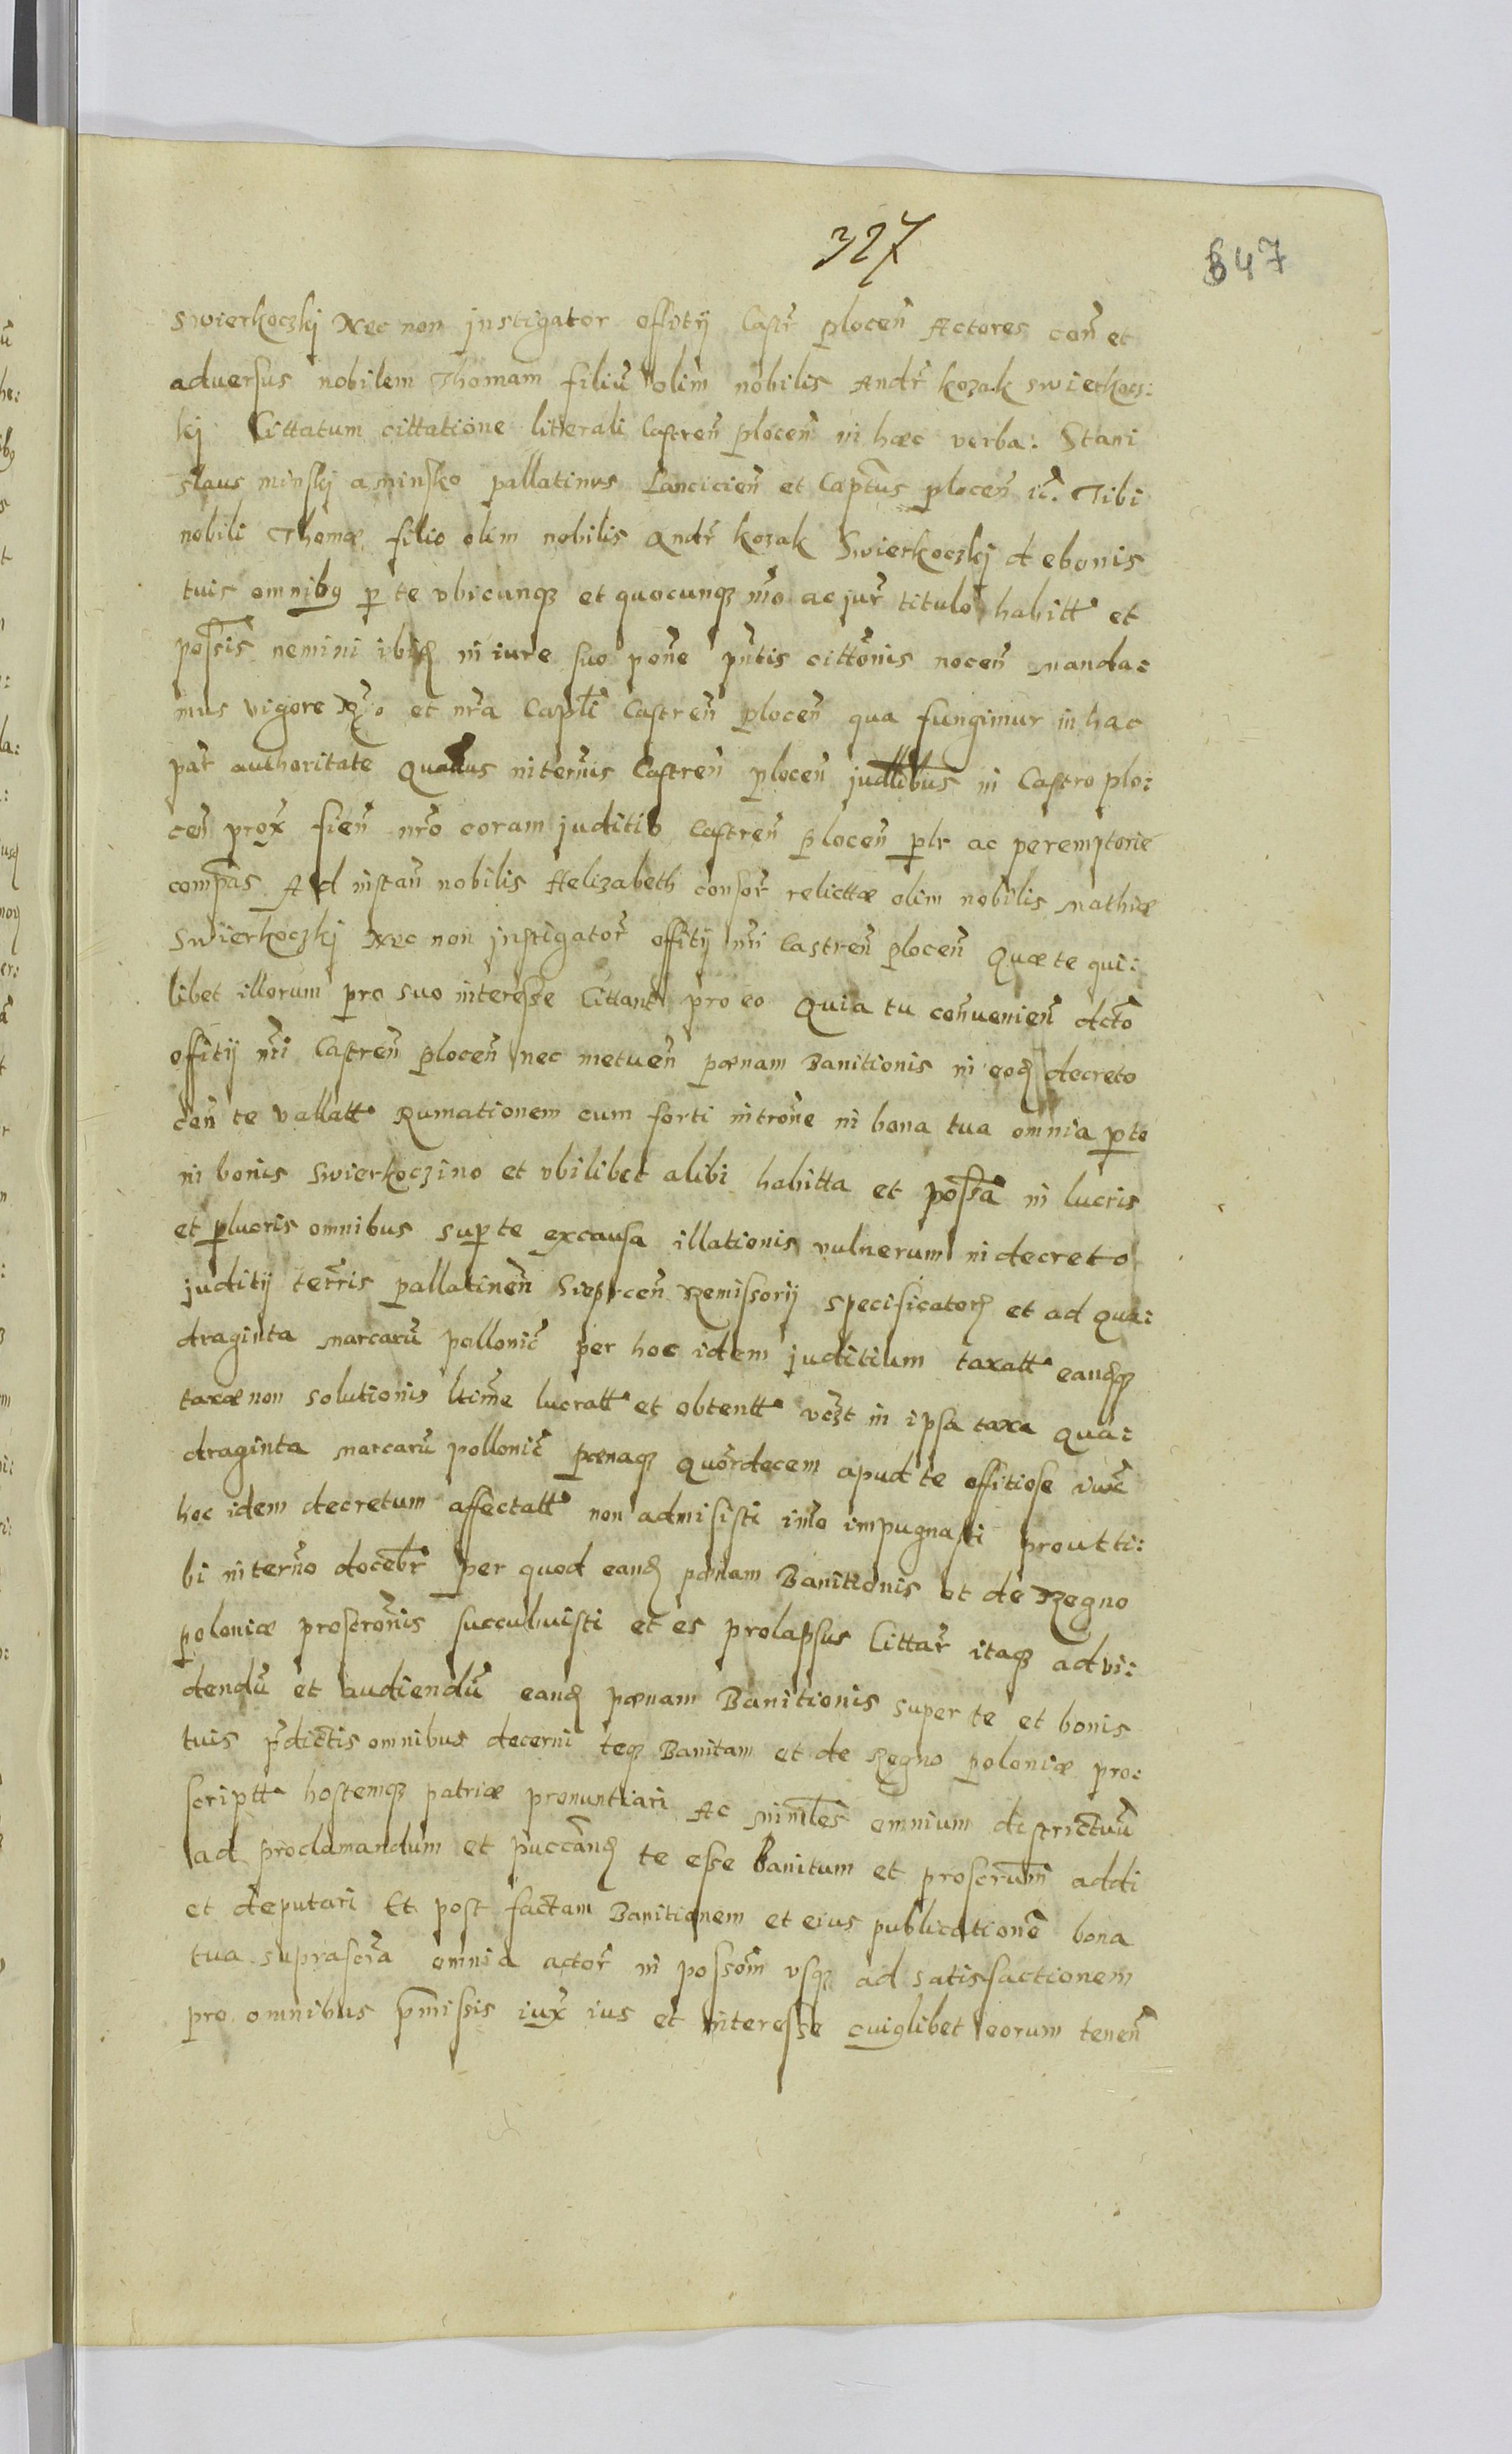 327
647
Swierkoczkj Nec non jnstigator offitij Castr̃ plocen̄ Actores con̄ et
adversus nobilem Thomam filiū olim nobilis Andr̃ kozak swierkocz:
kj Cittatum cittatione litterali Castren̄ plocen̄ in hæc verba: Stani
slaus minskj a minsko pallatinus Lancicien̄ et Captus plocen̄ ic̃. Tibi
nobili Thomæ filio olim nobilis Andr̃ kozak Swierkoczkj de bonis
tuis omnibꝰ p te vbicunqꝫ et quocunqꝫ mõ ac jur̃ titulo habitt et
possis nemini ibid in iure suo pone pn̄tis citton̄is nocen̄ manda:
mus vigore R̃o et nr̃a Capt̃li Castren̄ plocen̄ qua fungimur in hac
par̃ authoritate Quatus in terminis Castren̄ plocen̄ judlibus in Castro plo:
cen̄ prox̃ fien̄ nr̃o coram juditio Castren̄ plocen̄ plr ac peremptorie
compas Ad instan̄ nobilis Helizabeth consor̃ relictæ olim nobilis Mathiæ
Swierkoczkj Nec non jnstigator̃ offitij nr̃i Castren̄ plocen̄ Quæ te qui:
libet illorum pro suo interesse Cittant pro eo Quia tu con̄uenien̄ dcto
offitij nr̃i Castren̄ plocen̄ nec metuen̄ pœnam Banitionis in eod decreto
con̄ te vallatt Rumationem cum forti introne in bona tua omnia p te
in bonis Swierkoczino et vbilibet alibi habitta et possa in lucris
et plucris omnibus sup te ex causa illationis vulnerum in decreto
juditij terris pallatinen̄ Sieprcen̄ Remissorij specificator̃ et ad qua:
draginta marcarū pollonic̃ per hoc idem juditium taxatt eandqꝫ
taxæ non solutionis ltime lucratt et obtentt vczt in ipsa taxa qua:
draginta marcarū pollonic̃ pœnaqꝫ quordecem apud te offitiose iuxta
hoc idem decretum affectatt non admisisti imo impugnasti prout ti:
bi in termino docebr̃ per quod eand pœnam Banitionis et de Regno
poloniæ proscronis succubuisti et es prolapsus Cittar̃ itaqꝫ ad vi:
dendū et audiendū eand pœnam Banitionis super te et bonis
tuis p̃dictis omnibus decerni teqꝫ Banitam et de Regno poloniæ pro:
scriptt hostemqꝫ patriæ pronuntiari Ac minrles omnium districtuū
ad proclamandum et puccand te esse Banitum et proscrum addi
et deputari Et post factam Banitionem et eius publicationē bona
tua suprascra omnia actor̃ in possom vsqꝫ ad satisfactionem
pro omnibus p̃missis iux̃ ius et interesse cuiꝰlibet eorum tenen̄